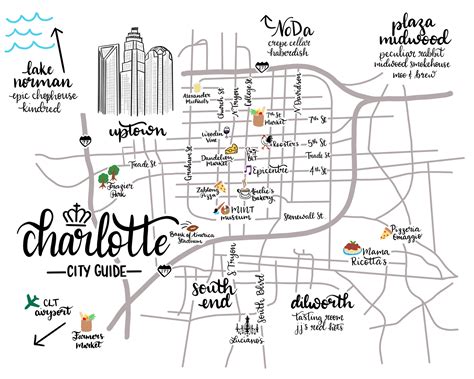 lake
norman
epic chophouse
kindred
NoDa
crepe cellar
haberdish
plaza
midwood
peculiar rabbit
midwood smokehouse
moo & brew
uptown
Alexander
Michaels
Church St
Tryon
College St
N Davidson
7th St
Market
7th St
Wooden
Vine
Roosters
5th St
Trade St
Dandelion
Market
BLT
Trade St
4th St
Graham St
Epicentre
Frazier
Park
Zablong
Pizza
Amelie's
Bakery
MINT
museum
Stonewall St
charlotte
CITY GUIDE
Bank of America
Stadium
Pizzeria
Omaggio
Mama
Ricotta's
CLT
airport
Farmers
market
S Tryon
south
end
South Blvd
dilworth
tasting room
jj's red hots
Lucianos